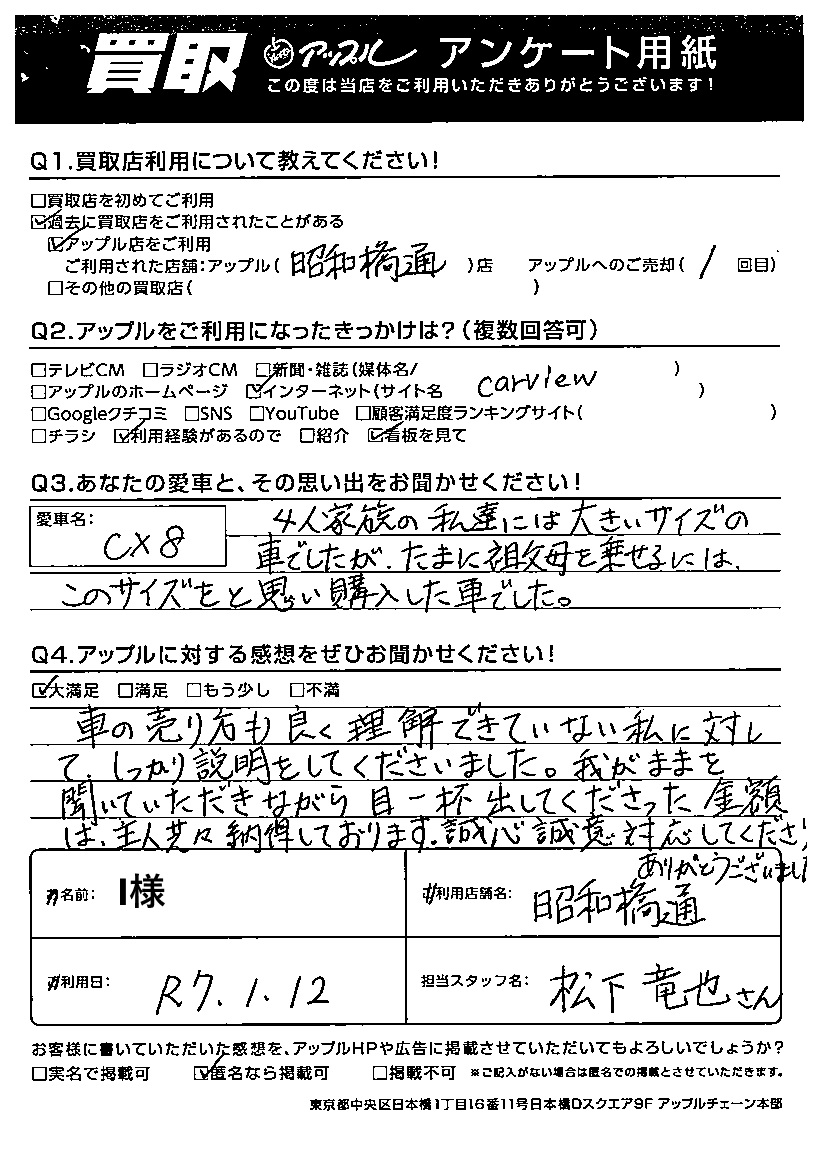 買取 アップル アンケート用紙
この度は当店をご利用いただきありがとうございます!
Q1.買取店利用について教えてください!
□買取店を初めてご利用
☑過去に買取店をご利用されたことがある
☑アップル店をご利用
ご利用された店舗:アップル(昭和橋通)店 アップルへのご売却(1回目)
□その他の買取店( )
Q2.アップルをご利用になったきっかけは?(複数回答可)
□テレビCM □ラジオCM □新聞・雑誌(媒体名/ )
□アップルのホームページ ☑インターネット(サイト名 carview )
□Googleクチコミ □SNS □YouTube □顧客満足度ランキングサイト( )
□チラシ ☑利用経験があるので □紹介 ☑看板を見て
Q3.あなたの愛車と、その思い出をお聞かせください!
愛車名: CX8
4人家族の私達には大きいサイズの
車でしたが、たまに祖父母を乗せるには、
このサイズをと思い購入した車でした。
Q4.アップルに対する感想をぜひお聞かせください!
☑大満足 □満足 □もう少し □不満
車の売り方も良く理解できていない私に対し
て、しっかり説明をしてくださいました。我がままを
聞いていただきながら目一杯出してくださった金額
は、主人共々納得しております。誠心誠意対応してくださり
ありがとうございまし
お名前: I様
ご利用店舗名: 昭和橋通
ご利用日: R7.1.12
担当スタッフ名: 松下竜也さん
お客様に書いていただいた感想を、アップルHPや広告に掲載させていただいてもよろしいでしょうか?
□実名で掲載可 ☑匿名なら掲載可 □掲載不可 ※ご記入がない場合は匿名での掲載とさせていただきます。
東京都中央区日本橋1丁目16番11号日本橋Dスクエア9F アップルチェーン本部